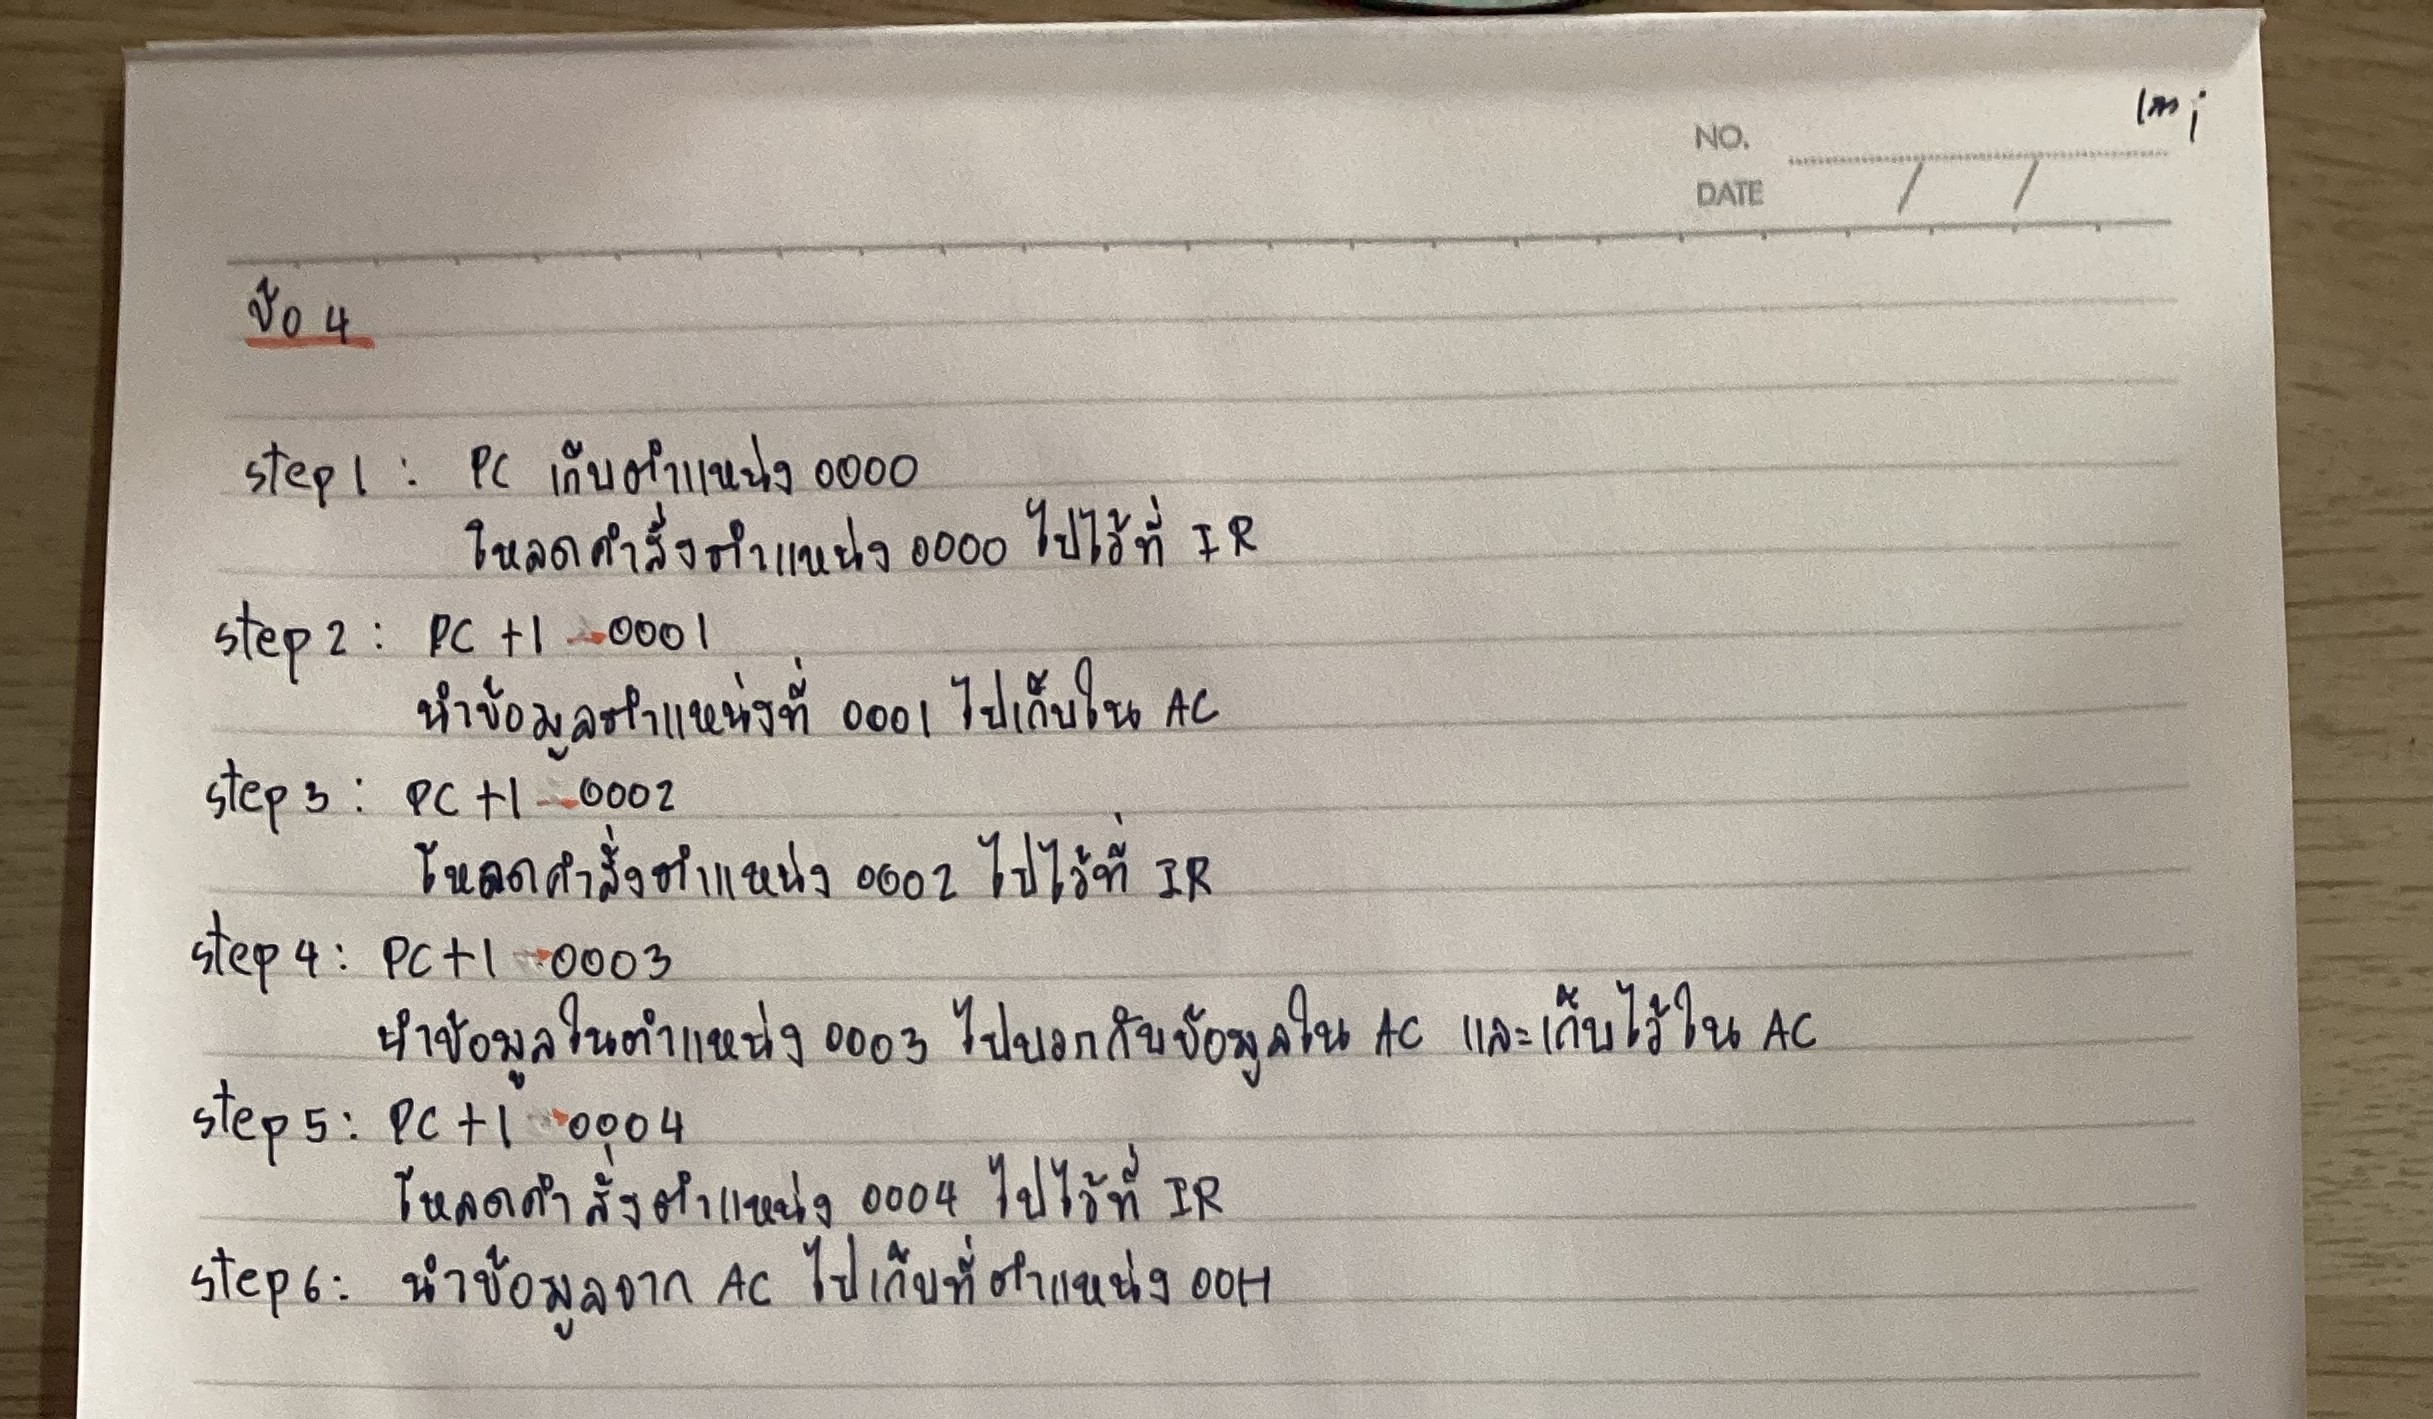 NO.
DATE / /
ข้อ 4
step 1 : PC เก็บตำแหน่ง 0000
โหลดคำสั่งตำแหน่ง 0000 ไปไว้ที่ IR
step 2 : PC +1 0001
นำข้อมูลตำแหน่งที่ 0001 ไปเก็บใน AC
step 3 : PC +1 0002
โหลดคำสั่งตำแหน่ง 0002 ไปไว้ที่ IR
step 4 : PC +1 0003
นำข้อมูลในตำแหน่ง 0003 ไปบวกกับข้อมูลใน AC และเก็บไว้ใน AC
step 5 : PC +1 0004
โหลดคำสั่งตำแหน่ง 0004 ไปไว้ที่ IR
step 6 : นำข้อมูลจาก AC ไปเก็บที่ตำแหน่ง 00H